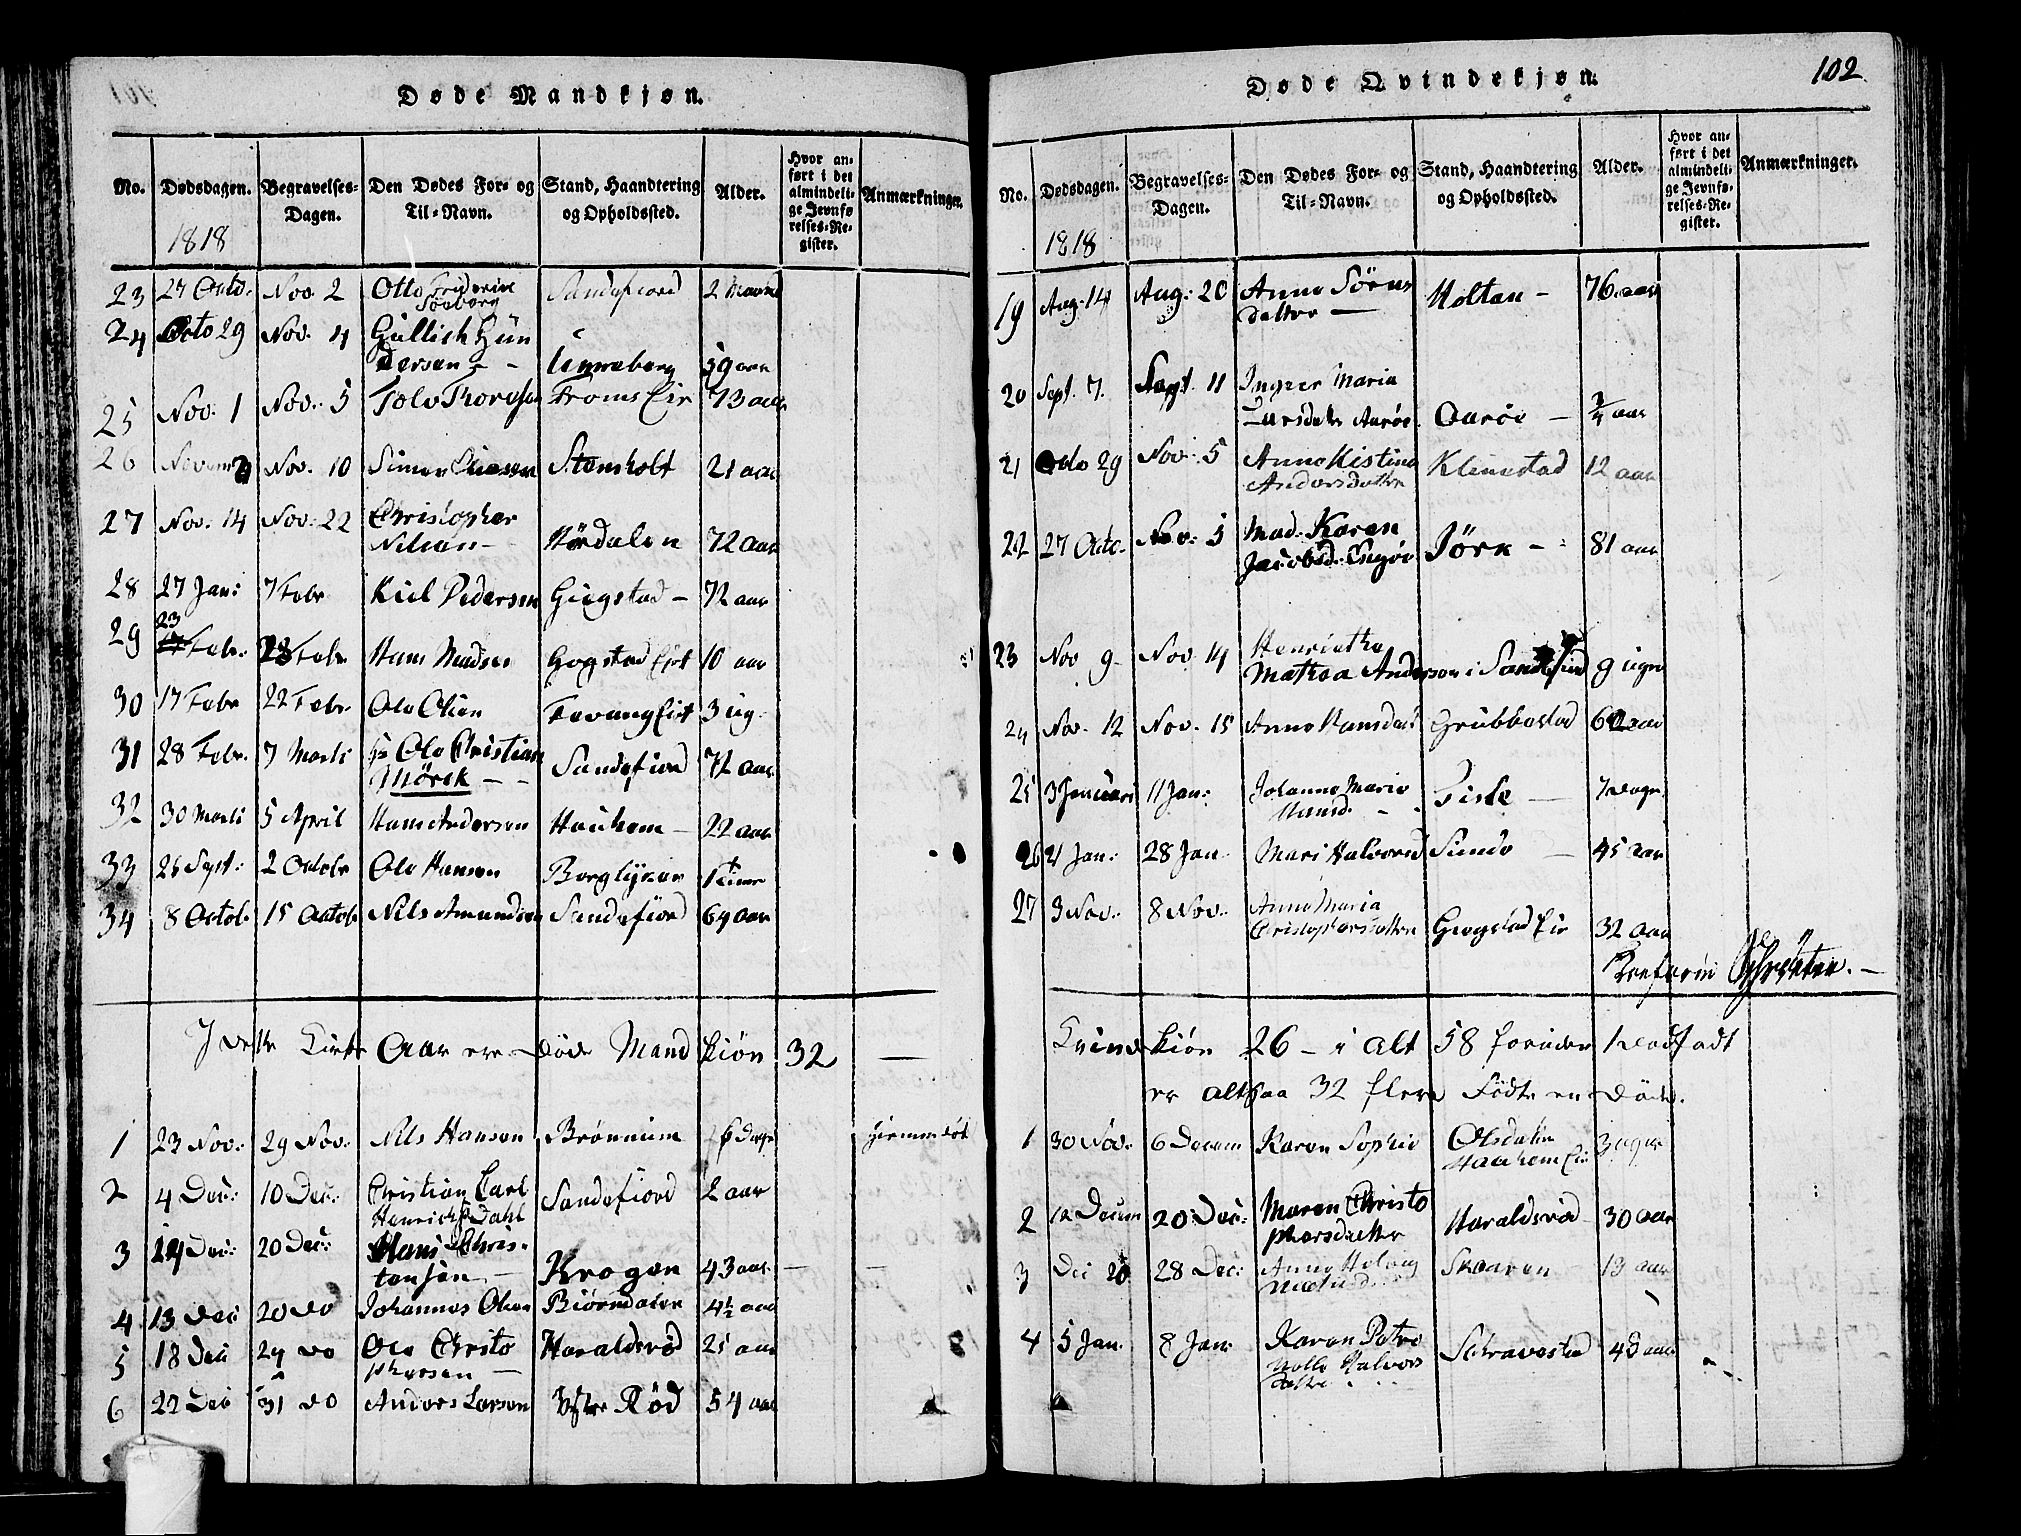 Døde Mandkjøn.
No. Dødsdagen. Begravelses-Dagen. Den Dødes For- og Til-Navn. Stand, Haandtering og Opholdssted. Alder. Hvor anført i det almindelige Jevnførelses-Register. Anmærkninger.
1818
23 27 Octo. Nov. 2 Otto Friderik Søeberg Sandefiord 2
24 Octo 29 Nov. 4 Gullich Gun
dersen - - 59 aar
25 Nov. 1 Nov. 5 73 aar
26 Novem Nov. 10 Simen Stensholt 21 aar
27 Nov. 14 Nov. 22 Christopher
Nilsen - Nordalen 72 aar
28 27 Jan: 7 Febr Kiil Pedersen Giegstad - 72 aar
29 23 Febr. 28 Febr Hans Madsen Gogstad Eiet 10 aar
30 17 Febr 22 Febr Ole Olsen Fevang Eiet 3 ug.
31 28 Febr. 7 Marti Hr Ole Christian
Mörck - - Sandefiord 72 aar
32 30 Marti 5 April Hans Andersen Haukem - 22 aar
33 26 Sept: 2 Octobr Ole Hansen 1 Time
34 8 Octob. 15 Octob. Nils Amundsen Sandefiord 64 aar
I dette Kirke Aar ere Döde Mand kiön 32 -
1 23 Nov: 29 Nov: Nils Hansen Brønnum 6 Dage hiemmedöbt
2 4 Dec: 10 Dec: Christian Carl
Henrich Dahl Sandefiord 2 aar
3 14 Dec: 20 Dec: Hans Chris-
tensen - Krogen 43 aar - -
4 13 Dec 20 do Johannes Olsen Biørndalen 4½ aar
5 18 Dec 24 do Ole Christo
phersen - Haraldsröd 25 aar
6 22 Dec 31 do Anders Larsen Röd 54 aar
Døde Qvindekjøn. 102
No. Dødsdagen. Begravelses-Dagen. Den Dødes For- og Til-Navn. Stand, Haandtering og Opholdssted. Alder. Hvor anført i det almindelige Jevnførelses-Register. Anmærkninger.
1818
19 Aug. 14 Aug: 20 Anne Sörens
datter - Holtan - 76 aar
20 Sept. 7. Sept. 11 Inger Maria
Larsdatter Aaröe Aaröe - ¾ aar
21 Octo 29 Nov: 5 Anne Kistine
Andersdatter Klinestad 12 aar
22 27 Octo. Nov: 5 Mad: Karen
Jacobsd: Engöe Jörk - 81 aar
23 Nov 9 - Nov. 14 Henriethe
Mathea Anderson i Sandefiord 9 uger
24 Nov. 12 Nov. 15 Anne Hansdatt Grubbestad 62 aar
25 3 Januari 11 Jan: Johanne Marie
Hansd. - - 7 Dage
26 21 Jan: 28 Jan. Mari Halvorsd Sunde - 45 aar
27 3 Nov: 8 Nov: Anne Maria
Christophersdatter Giegstad Eie 32 aar
Schröeter. -
Kvindekiön 26 - i Alt 58 foruden 1 Dødfødt
er altsaa 32 flere Födte en Döde.
1 30 Nov: 6 Decem Karen Sophie Olsdatter
Haukem Eie 3 uger
2 12 Decem 20 Dec: Maren Christo
phersdatter Haraldsröd 30 aar
3 Dec 20 28 Dec: Anne Helvig Skaaren - 13 aar
4 5 Jan: 8 Jan: Karen Petro
nelle Halvors
datter Skravestad 43 aar